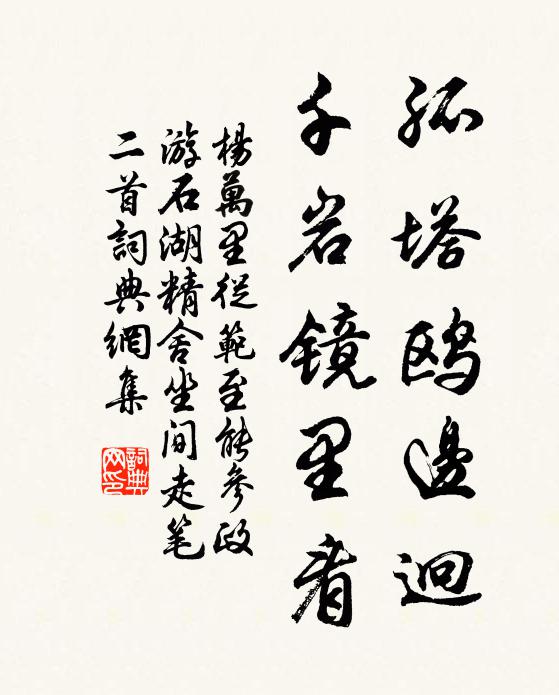 孤塔鸥邊迴
千岩镜里看
楊萬里從範至能參政
游石湖精舍坐间走笔
二首詞典網集
詞典
网印